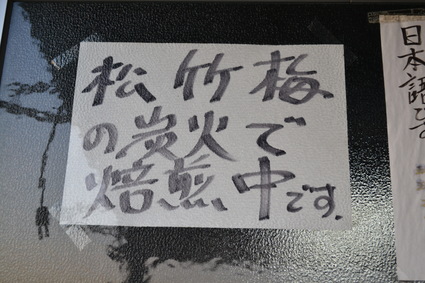 松竹梅
の炭火で
焙煎中です.
日本語で